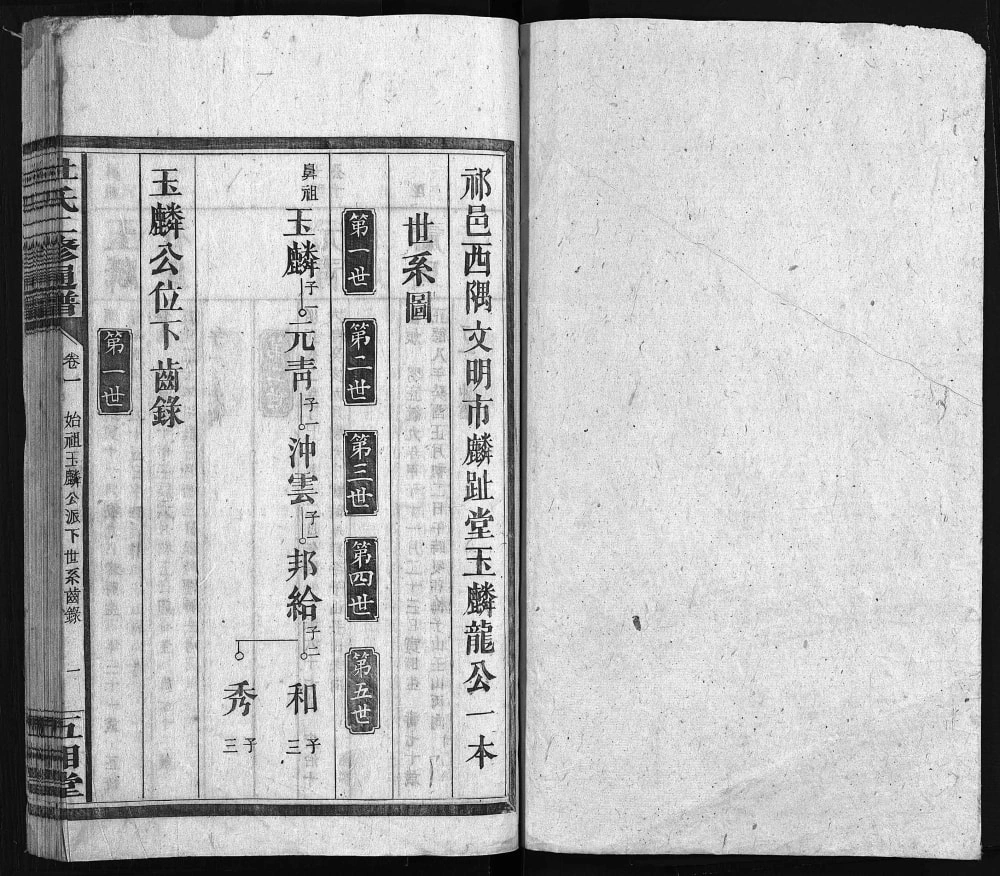 祁邑西隅文明市麟趾堂玉麟龍公一本
世系圖
第一世 第二世 第三世 第四世 第五世
鼻祖 玉麟 子一 元靑 子一 沖雲 子一 邦給 子二 和 子三
秀 子三
玉麟公位下齒錄
第一世
杜氏二修通譜 卷一 始祖玉麟公派下世系齒錄 一 五相堂